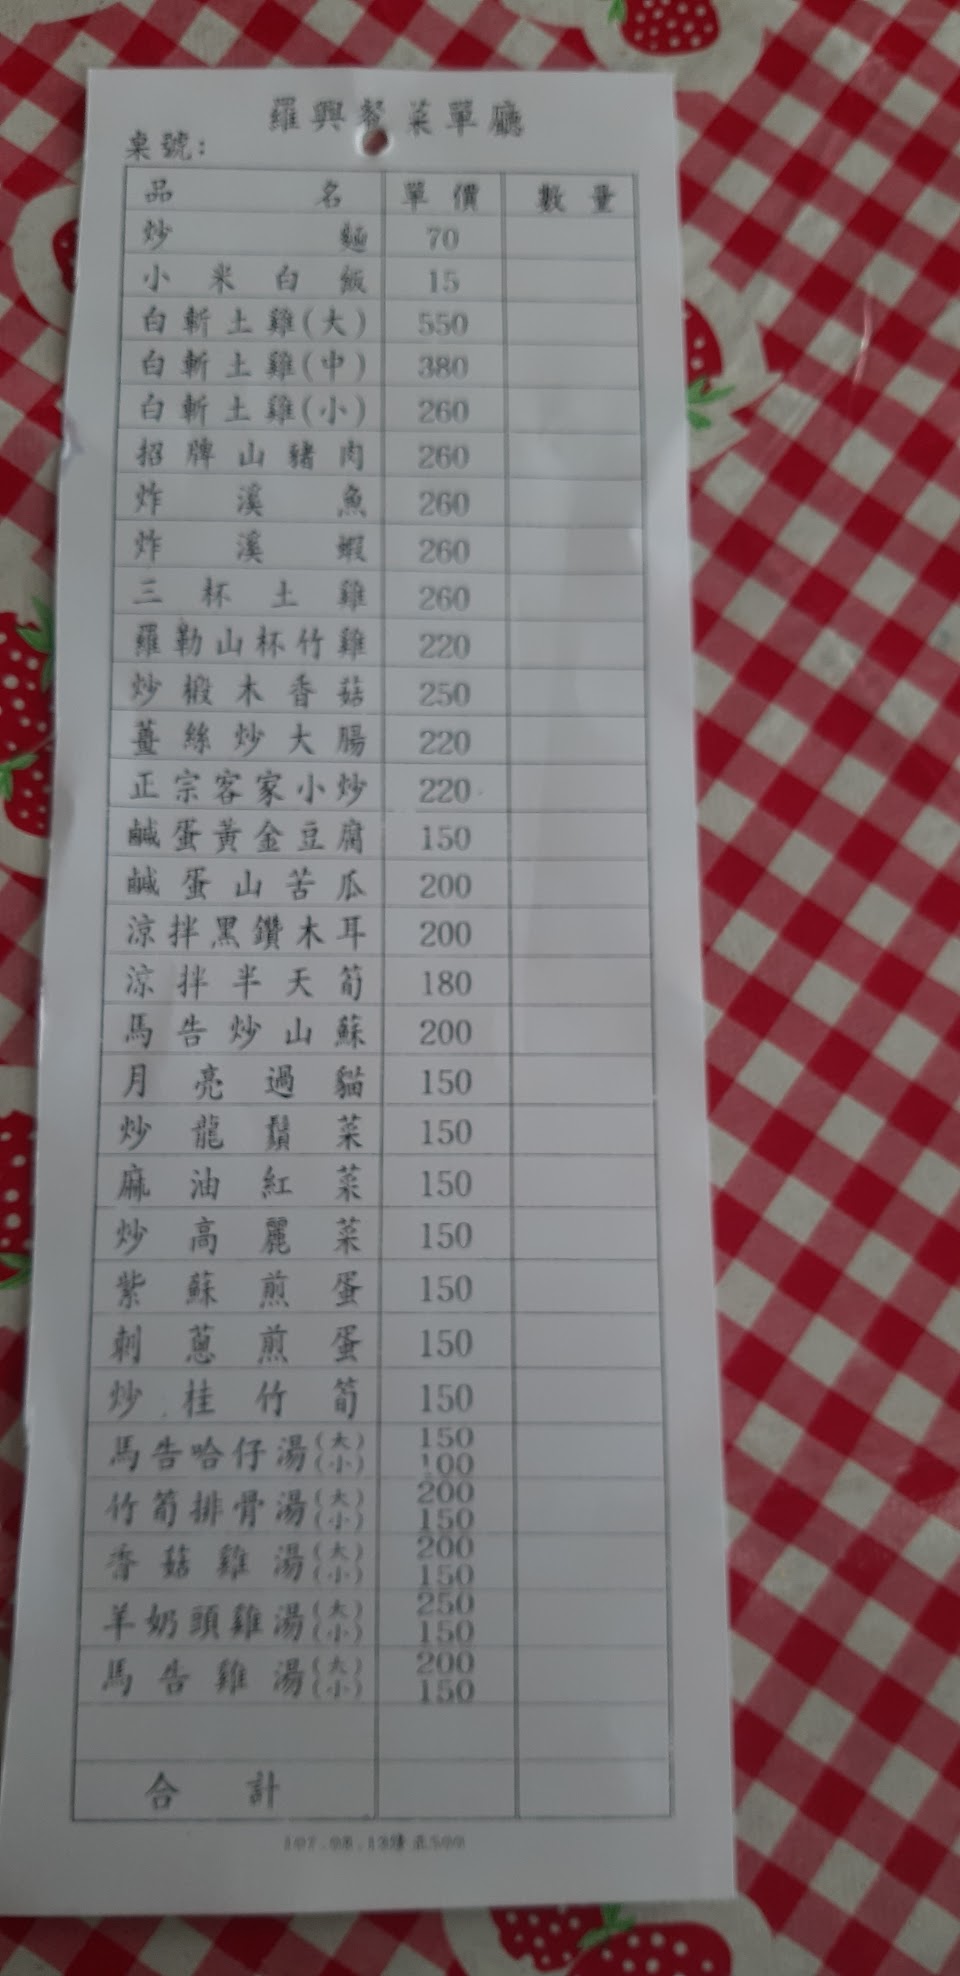 羅興餐菜單廳
桌號:
品名 單價 數量
炒麵 70
小米白飯 15
白斬土雞(大) 550
白斬土雞(中) 380
白斬土雞(小) 260
招牌山豬肉 260
炸溪魚 260
炸溪蝦 260
三杯土雞 260
羅勒山杯竹雞 220
炒椴木香菇 250
薑絲炒大腸 220
正宗客家小炒 220
鹹蛋黃金豆腐 150
鹹蛋山苦瓜 200
涼拌黑鑽木耳 200
涼拌半天筍 180
馬告炒山蘇 200
月亮過貓 150
炒龍鬚菜 150
麻油紅菜 150
炒高麗菜 150
紫蘇煎蛋 150
刺蔥煎蛋 150
炒桂竹筍 150
馬告哈仔湯(大) 150
(小) 100
竹筍排骨湯(大) 200
(小) 150
香菇雞湯(大) 200
(小) 150
羊奶頭雞湯(大) 250
(小) 150
馬告雞湯(大) 200
(小) 150
合計
107.08.13